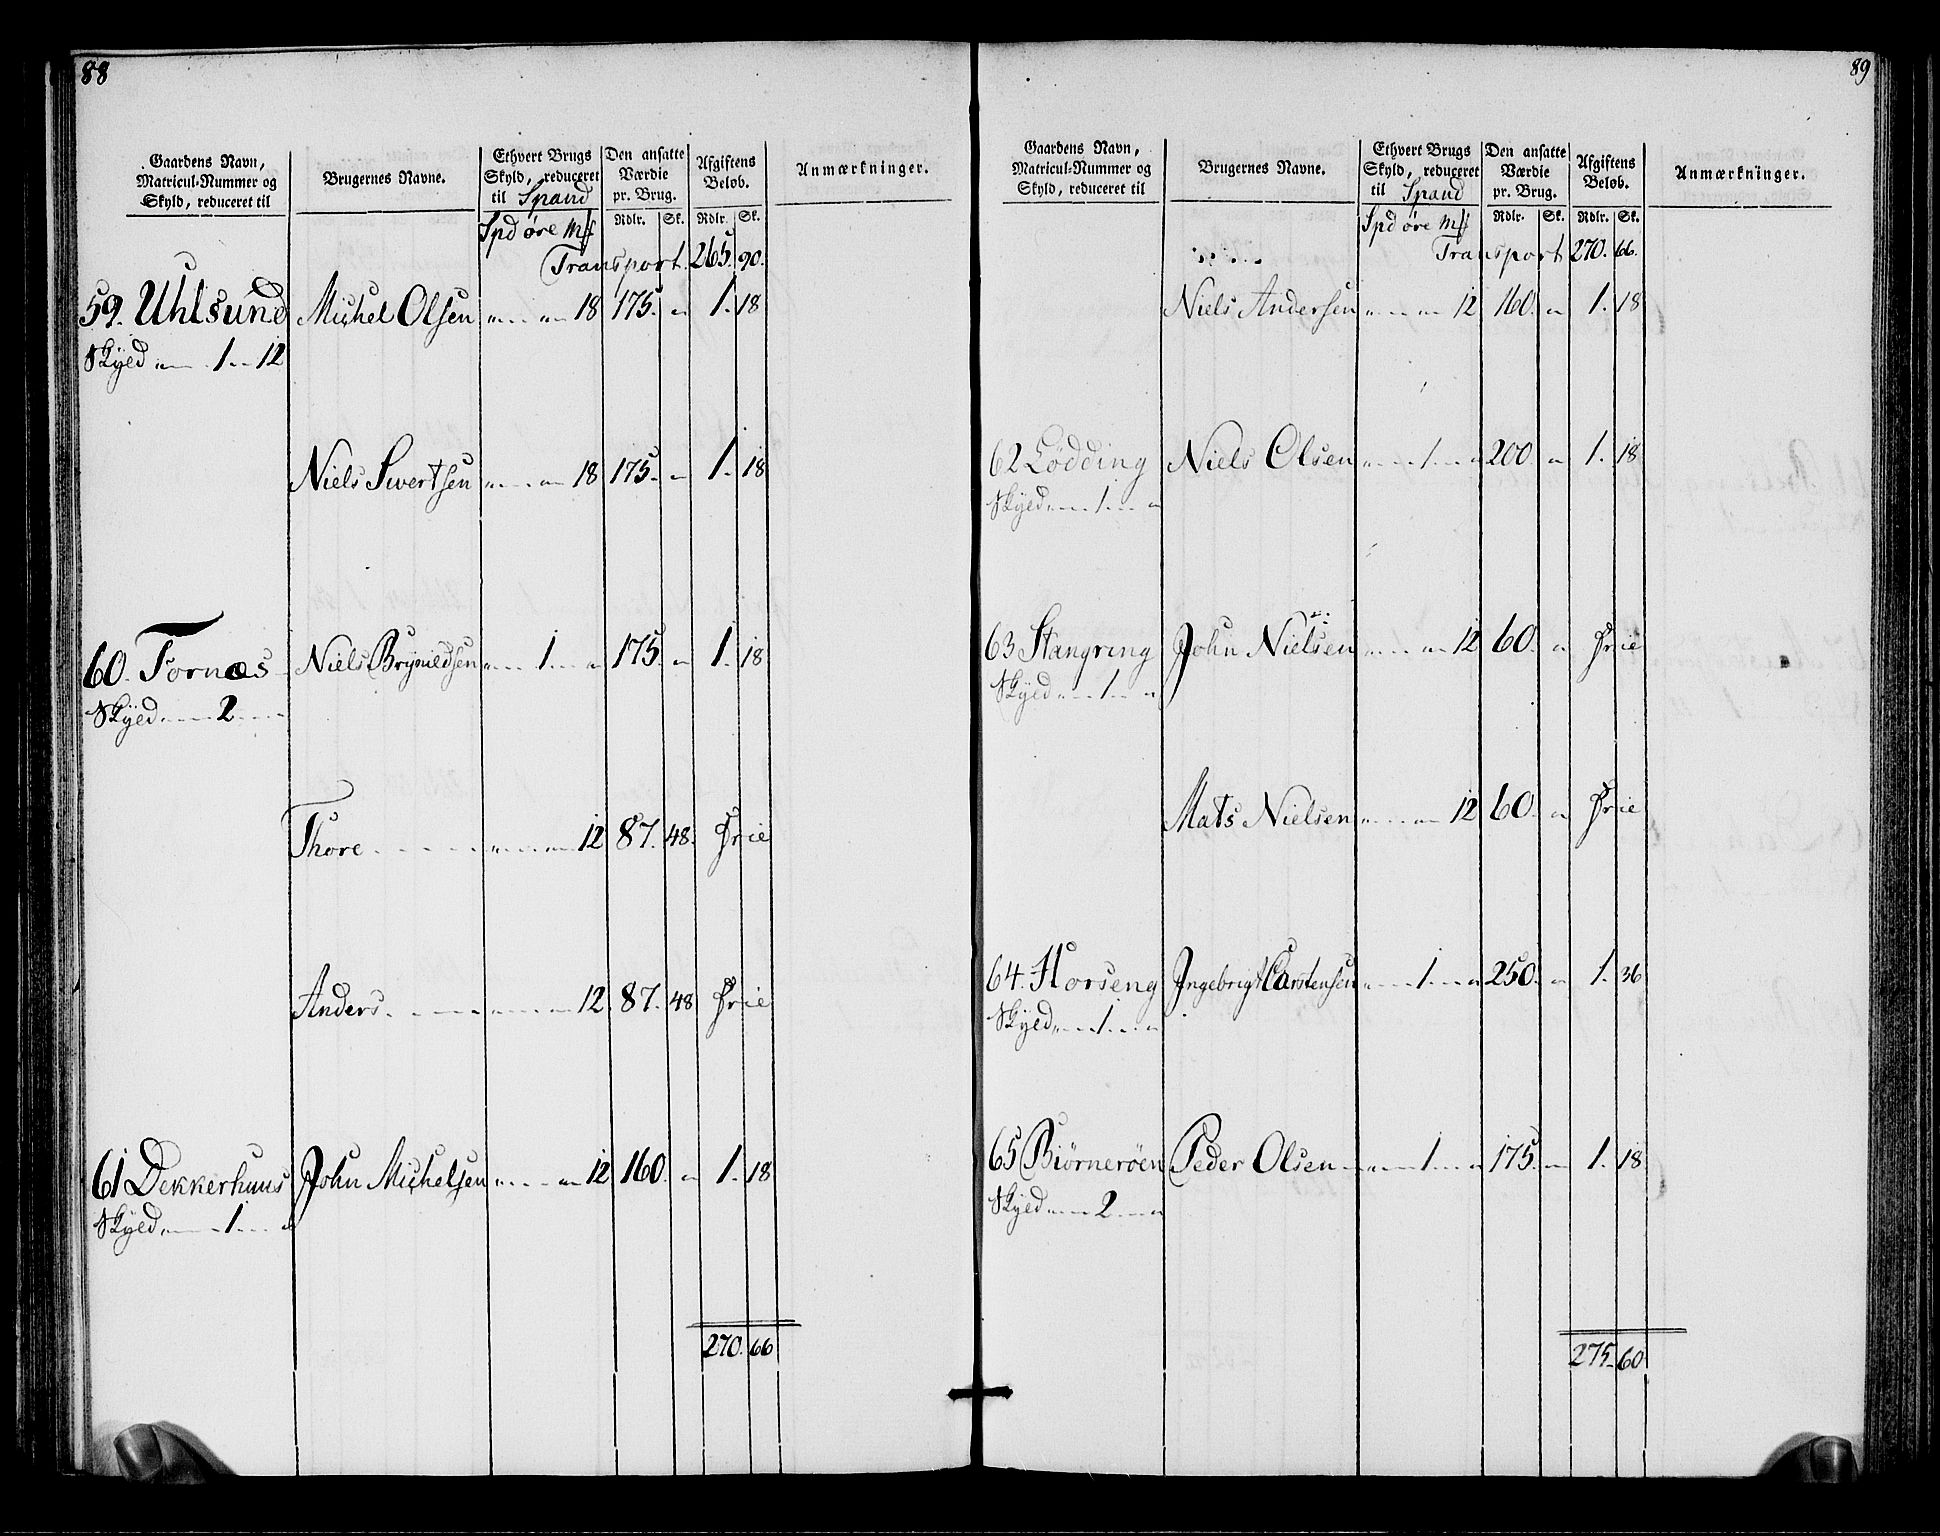 88
Gaardens Navn, Matricul-Nummer og Skyld, reduceret til
Brugernes Navne.
Ethvert Brugs Skyld, reduceret til Spand
Den ansatte Værdie pr. Brug.
Afgiftens Beløb.
Anmærkninger.
Spd øre Mf Rdlr. Sk. Rdlr. Sk.
Transport. 265. 90.
59. Uhlsund Michel Olsen " " 18 175. " 1. 18
Skyld " 1 " 12
Niels Sivertsen " " 18 175. " 1. 18
60. Fornæs Niels Brynildsen " 1 " 175. " 1. 18
Skyld " 2 "
Thore " " 12 87. 48. Frie
Anders " " 12. 87. 48 Frie
61 Dekkerhuus John Michelsen " " 12 160. " 1. 18
Skyld " 1 "
270. 66
89
Gaardens Navn, Matricul-Nummer og Skyld, reduceret til
Brugernes Navne.
Ethvert Brugs Skyld, reduceret til Spand
Den ansatte Værdie pr. Brug.
Afgiftens Beløb.
Anmærkninger.
Spd øre Mf Rdlr. Sk. Rdlr. Sk.
Transport 270. 66.
Niels Andersen " " 12 160. " 1. 18
62 Lødding Niels Olsen " 1 " 200. " 1. 18
Skyld " 1 "
63 Stangring John Nielsen " " 12 60. " Frie
Skyld " 1 "
Mats Nielsen " " 12 60. " Frie
64. Horseng Ingebrigt Carstensen " 1 " 250. " 1. 36
Skyld " 1 "
65 Biørnerøen Peder Olsen " 1 " 175. " 1. 18
Skyld " 2 "
275. 60